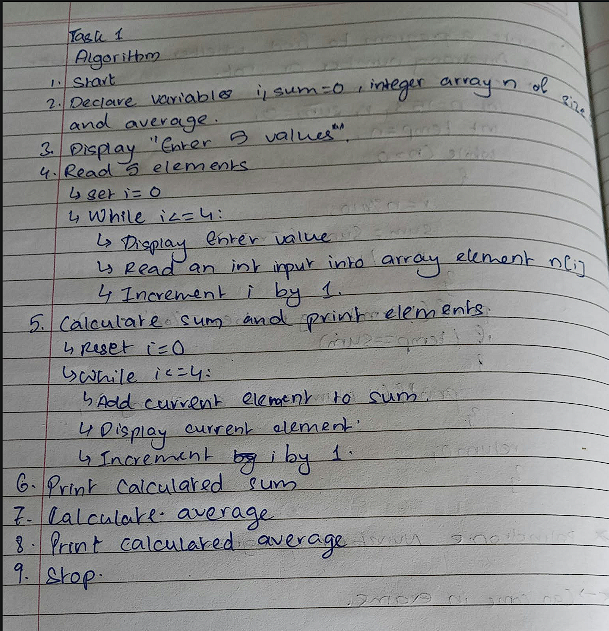 Task 1
Algorithm
1. Start
2. Declare variables i, sum=0, integer array n of size
and average.
3. Display "Enter 5 values".
4. Read 5 elements
↳ set i=0
↳ While i<=4:
↳ Display Enter value
↳ Read an int input into array element n[i]
↳ Increment i by 1.
5. Calculate sum and print elements.
↳ Reset i=0
↳ While i<=4:
↳ Add current element to sum
↳ Display current element.
↳ Increment i by 1.
6. Print calculated sum
7. Calculate average
8. Print calculated average
9. Stop.